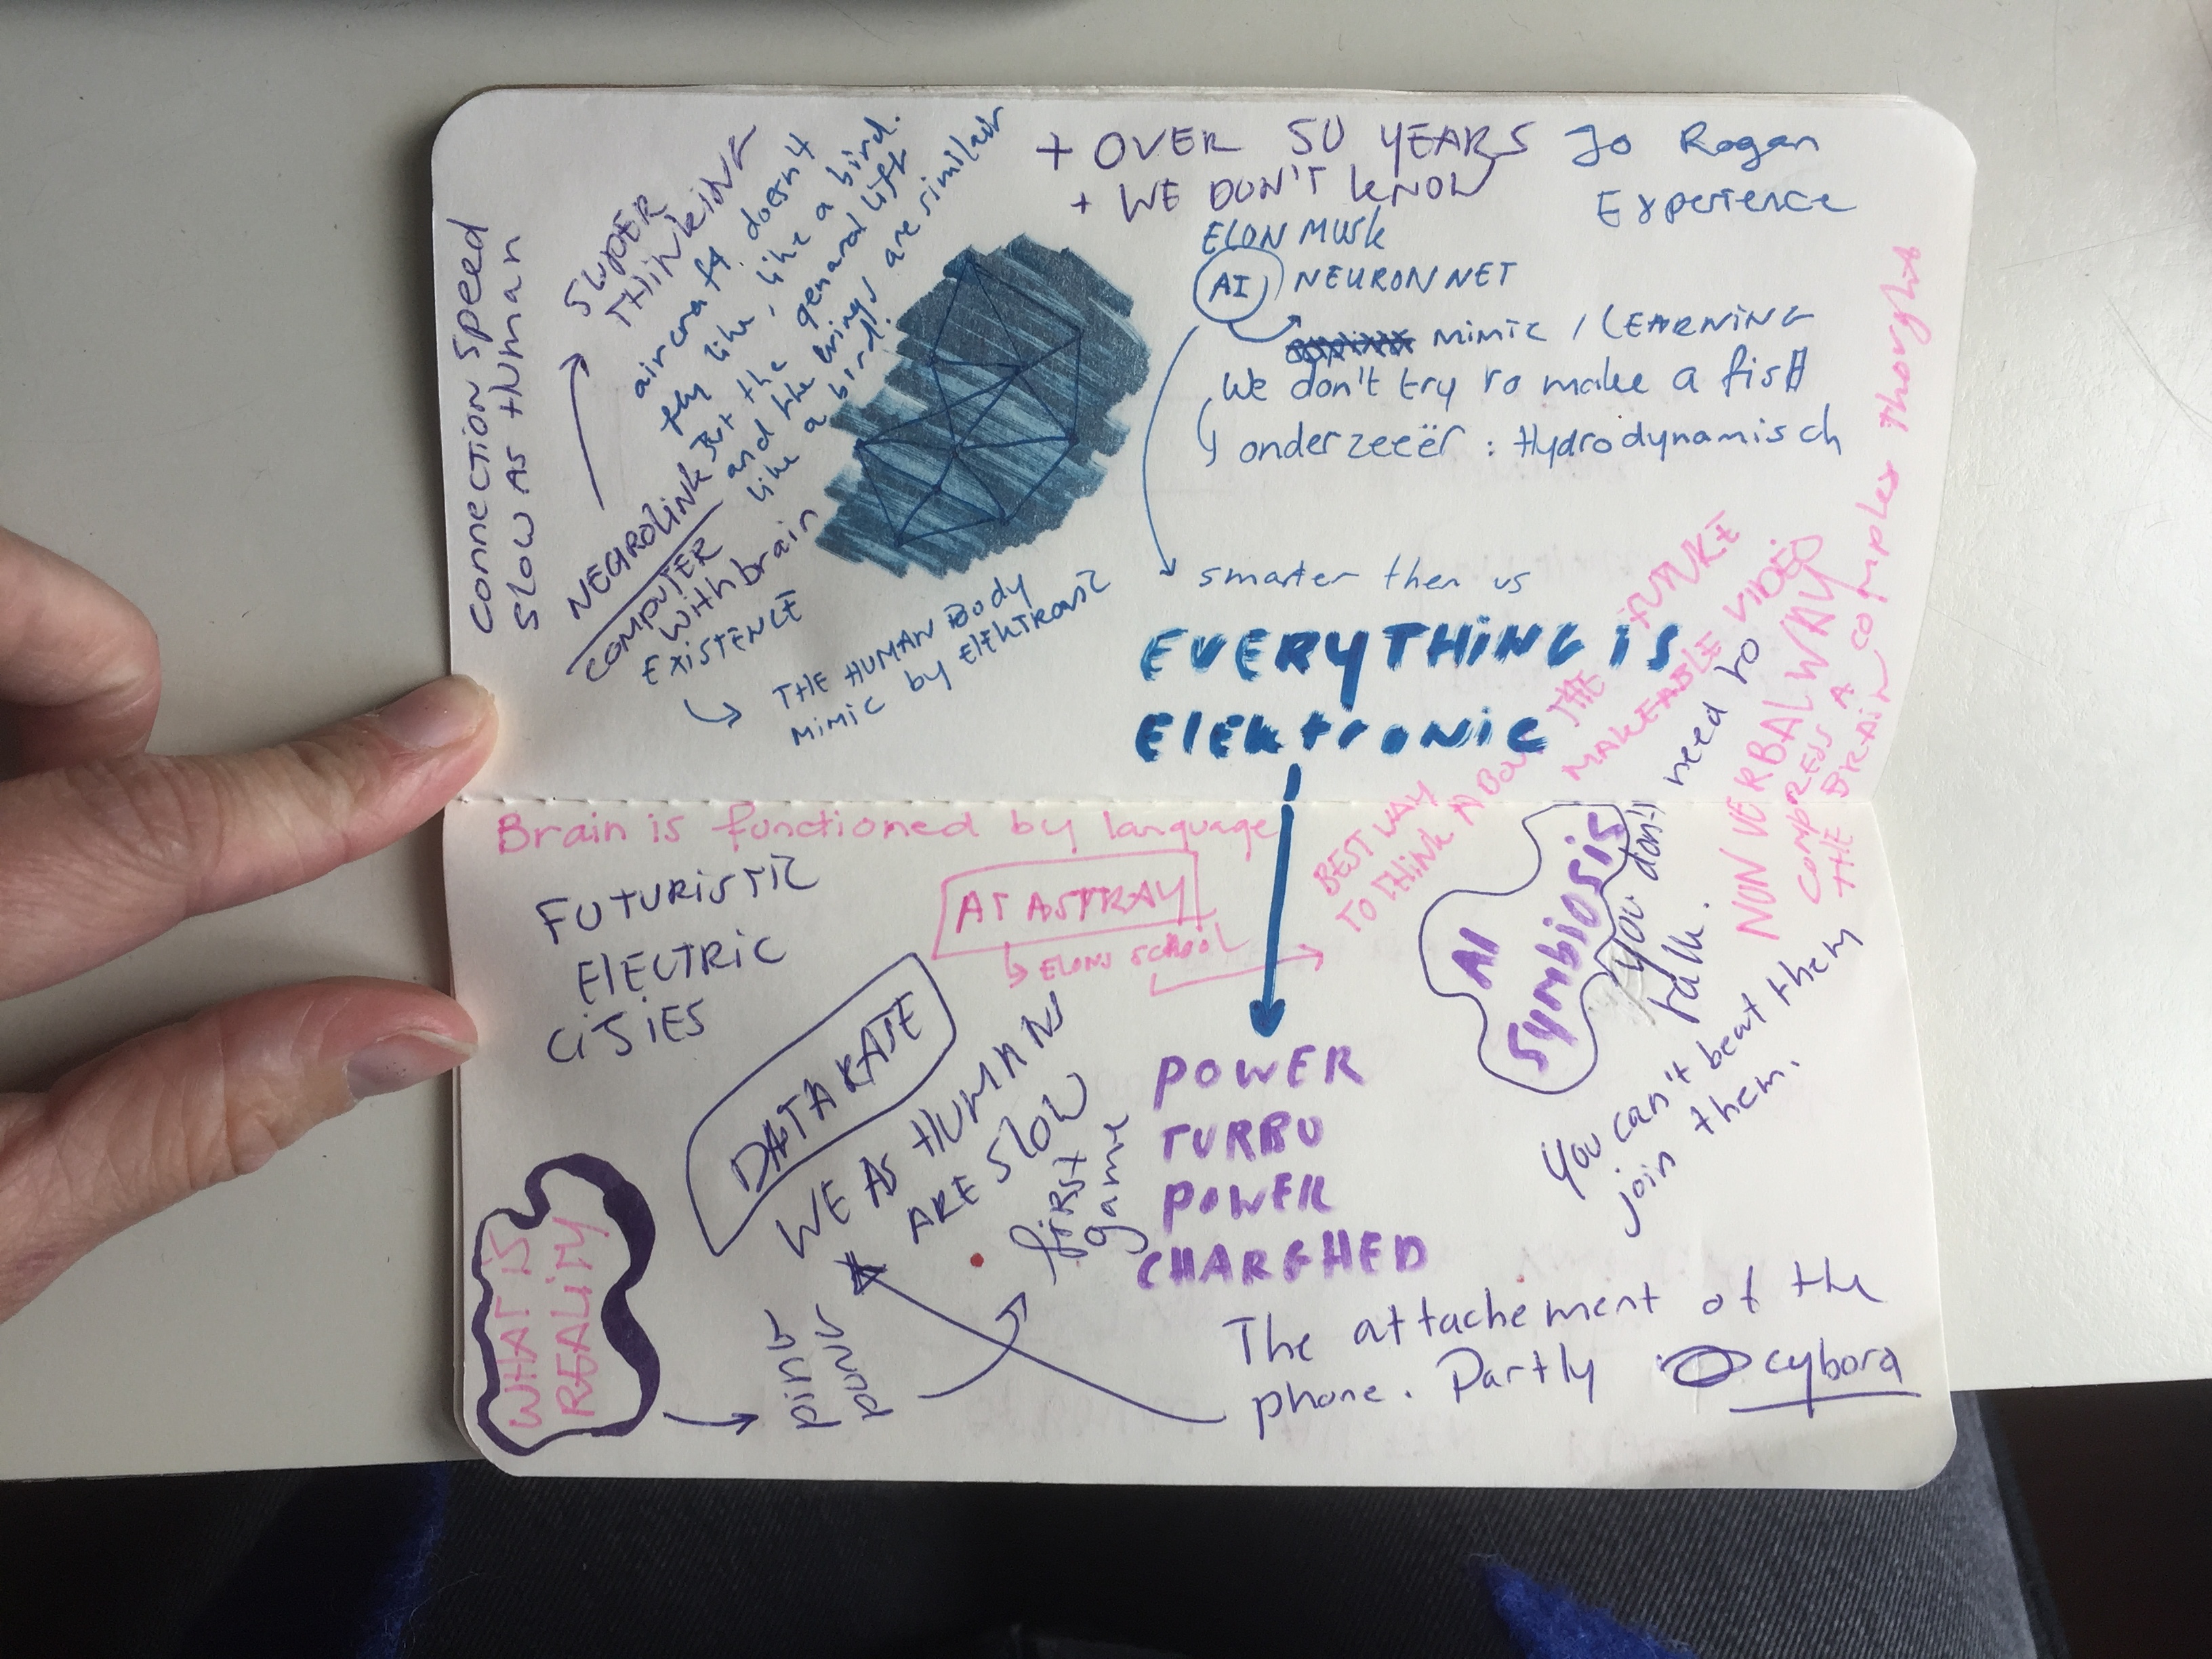 + OVER 50 YEARS
+ WE DON'T KNOW
Jo Rogan
Experience
ELON MUSK
AI NEURONNET
MIMIC / LEARNING
We don't try ro make a fisH
onderzeeër : Hydrodynamisch
smarter then us
EVERYTHING is
ElEktronic
connection speed
slow as Human
SUPER
THINKING
aircraft doesn't
fly like, like a bird.
But the general lift
and the wings are similair
like a bird.
NEUROLINK
COMPUTER
with brain
EXISTENCE
THE HUMAN Body
MIMIC by ElEKTRONIC
Brain is functioned by language
FUTURISTIC
ElECTRIC
CiTiES
AT ASTRAY
ELONS SCHOOL
BEST WAY
TO THINK ABOUT THE FUTURE
MAKEABLE VIDEO
AI
Symbiosis
you don't need to
talk.
NON VERBAL WAY
COMPRESS A complex thought
THE BRAIN
You can't beat them
join them.
DATA RATE
WE AS HUMANS
ARE SLOW
POWER
TURBO
POWER
CHARGHED
WHAT IS
REALITY
first
game
The attachement of the
phone. Partly cyborg